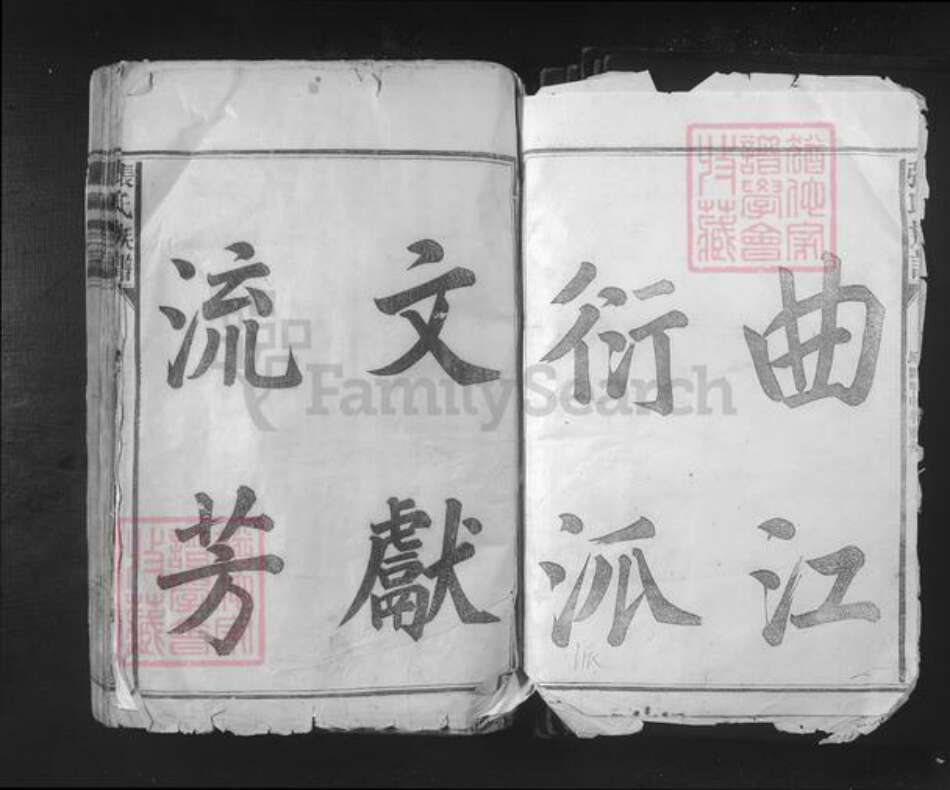 曲江
衍派
文獻
流芳
張氏族譜
猶他家譜學會收藏
猶他家譜學會收藏
FamilySearch